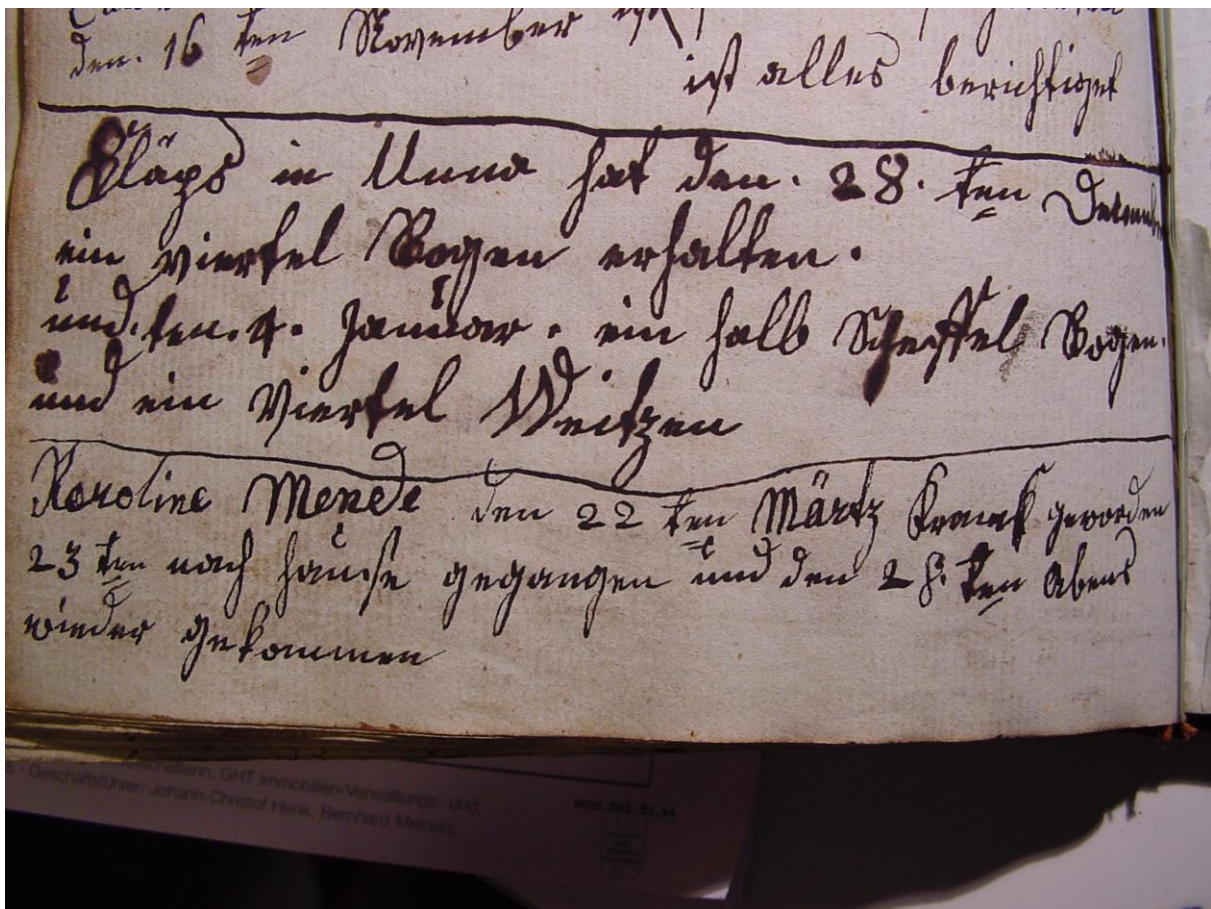 den. 16 ten November
ist alles berichtiget
in Unna hat den. 28. ten December
ein viertel Rogen erhalten.
und. ten. 4. Januar. ein halb Scheffel Rogen.
und ein Viertel Weitzen
Karoline Mende den 22 ten Märtz Kranck geworden
23 ten nach hause gegangen und den 28. ten Abens
wieder gekommen
GHT Immobilien-Verwaltungs- und
Geschäftsführer: Johann-Christof Henk, Bernhard Meiners